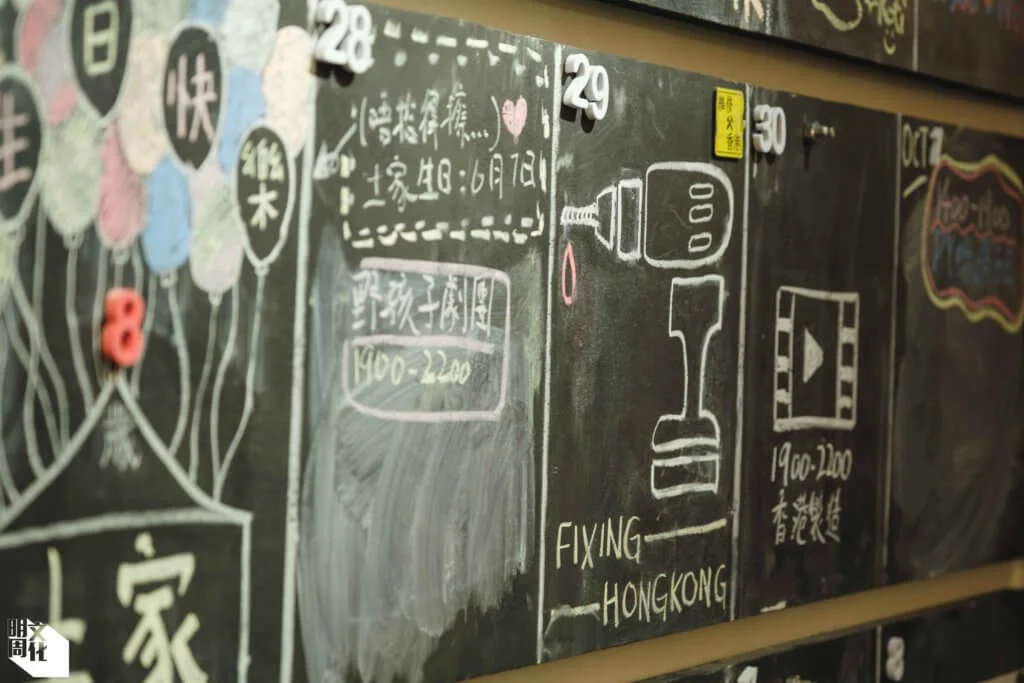 生日快樂
8
歲
土家
28
(唔捨得擦....)
土家生日:6月7日
野孩子劇團
1900-2200
29
維修
香港
FIXING
HONGKONG
30
1900-2200
香港製造
OCT 1
8
明周文化